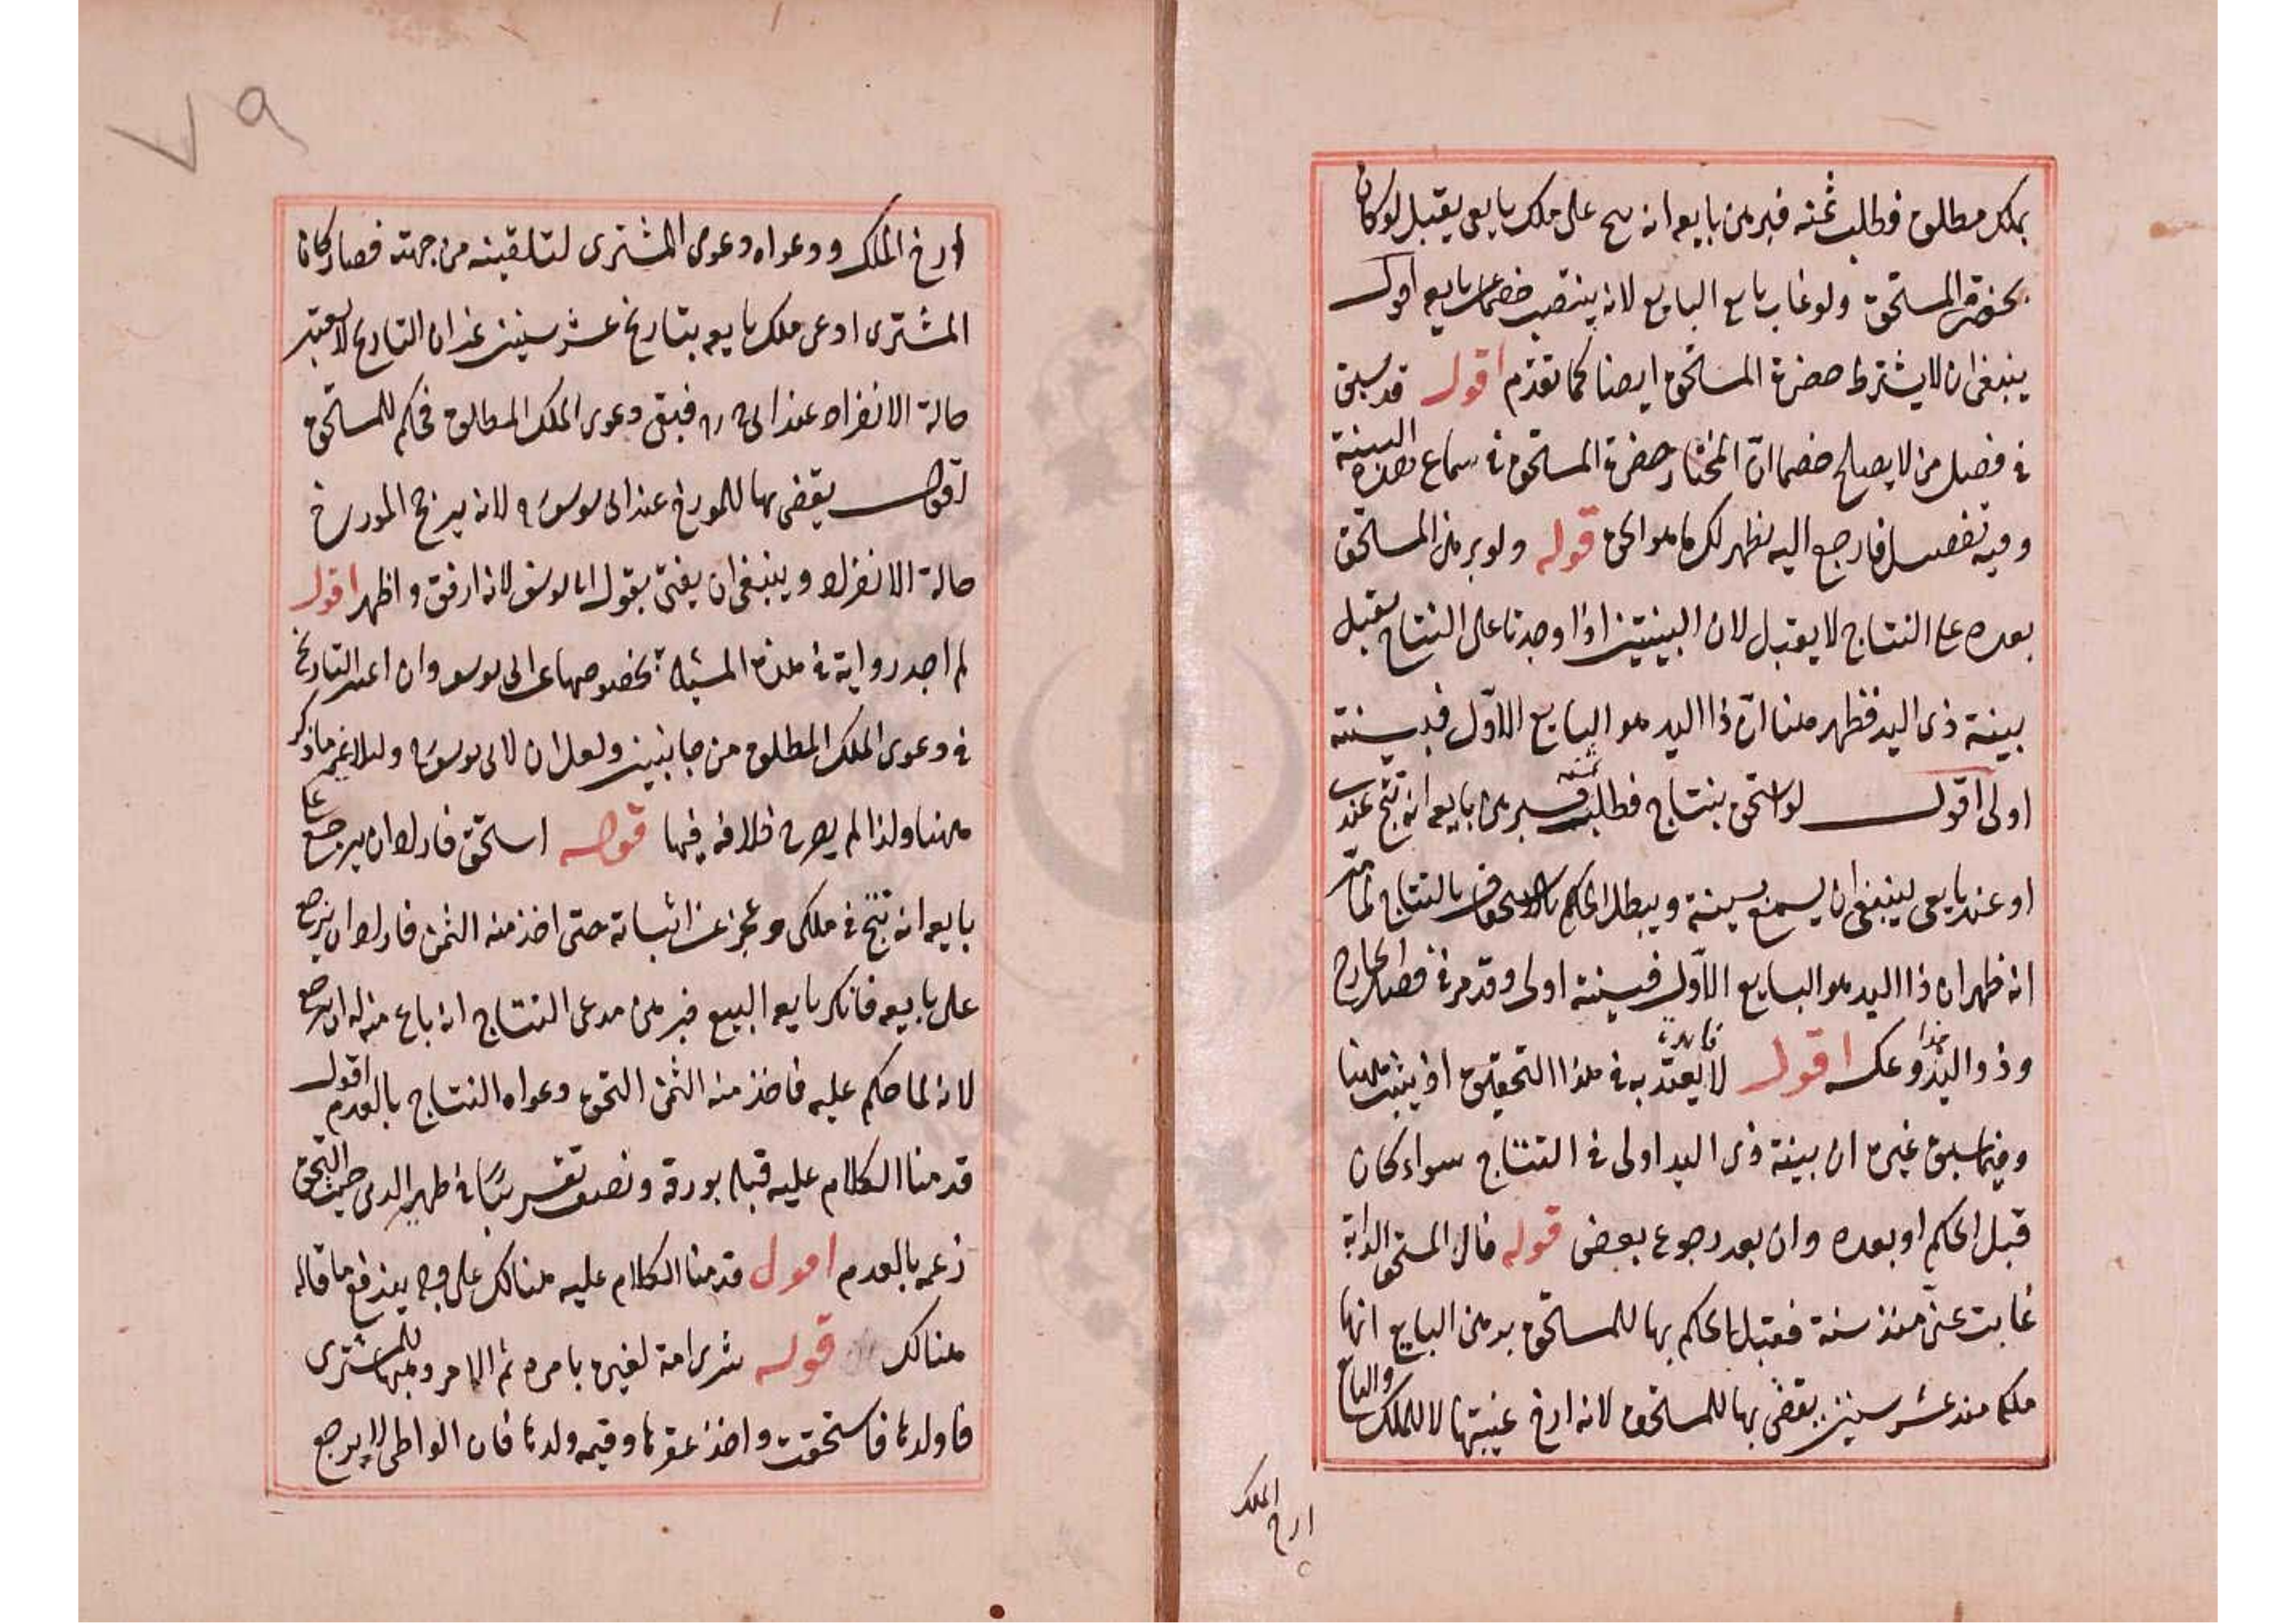 بملك مطلق فطلب ثمنه فبرهن بايعه انه نتج على ملك بايعى يقبل لو كان
بحضرة المستحق ولو غاب بايع البايع لانه ينتصب خصما عن بايعه اقول
ينبغى ان لا يشترط حضرة المستحق ايضا كما تقدم اقول قد سبق
فى فصل من لا يصلح خصما ان المختار حضرة المستحق فى سماع هذه البينة
وفيه تفصيل فارجع اليه يظهر لك ما هو الحق قوله ولو برهن المستحق
بعده على النتاج لا يقبل لان البينتين اذا وجدتا على النتاج يقبل
بينة ذى اليد فظهر هنا ان ذا اليد هو البايع الاول فبينته
اولى اقول لو استحق بنتاج فطلب ثمنه فبرهن بايعه انه نتج عندى
او عند بايعى ينبغى ان يسمع بينته ويبطل الحكم بالاستحقاق بالنتاج لما مر
انه ظهر ان ذا اليد هو البايع الاول فبينته اولى وقد مر فى فصل الخارج
وذو اليد وعكسه اقول لا فائدة يعتد به فى هذا التحقيق اذ يثبت ههنا
وفيما سبق غيره ان بينة ذى اليد اولى فى النتاج سواء كان
قبل الحكم او بعده وان بعد رجوع بعض قوله قال المستحق الدابة
غابت عنى منذ سنة فقبل الحكم بها للمستحق برهن البايع انها
ملكه منذ عشر سنين يقضى بها للمستحق لانه ارخ غيبتها لا للملك والبايع
ارخ الملك
٧٩
ارخ الملك ودعواه دعوى المشترى لتلقيه من جهته فصار كان
المشترى ادعى ملك بايعه بتاريخ عشر سنين غير ان التاريخ لا يعتبر
حالة الانفراد عند ابى ح رح فبقى دعوى الملك المطلق فحكم للمستحق
اقول يقضى بها للمورخ عند ابى يوسف لانه يرجح المورخ
حالة الانفراد وينبغى ان يفتى بقول ابى يوسف لانه ارفق واظهر اقول
لم اجد رواية فى هذه المسئلة بخصوصها عن ابى يوسف وان اعتبر التاريخ
فى دعوى الملك المطلق من جانبين ولعل ان لابى يوسف دليلا غير ما ذكر
ههنا ولذا لم يصرح خلافه فيها قوله استحق فاراد ان يرجع على
بايعه انه نتج فى ملكى وعجز عن اثباته حتى اخذ منه الثمن فاراد ان يرجع
على بايعه فانكر بايعه البيع فبرهن مدعى النتاج انه باع منه له ان يرجع
لانه لما حكم عليه فاخذ منه الثمن التحق دعواه النتاج بالعدم اقول
قدمنا الكلام عليه قبله بورقة ونصف تقريبا فى ظهير الدين حيث التحق
زعمه بالعدم اقول قدمنا الكلام عليه هنالك على وجه يندفع ما قاله
هنالك قوله شرى امة لغيره بامره ثم الامر وهبها للمشترى
فاولدها فاستحقت واخذ عقرها وقيمه ولدها فان الواطى لا يرجع